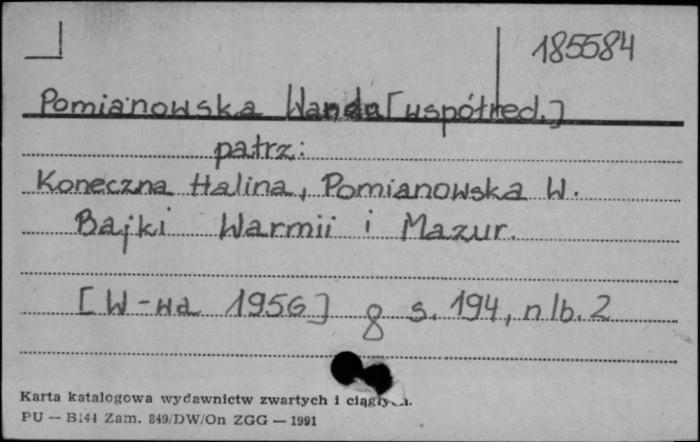 185584
Pomianowska Wanda [współred.]
patrz:
Koneczna Halina, Pomianowska W.
Bajki Warmii i Mazur.
[W-wa 1956] 8 s. 194, nlb. 2
Karta katalogowa wydawnictw zwartych i
PU — B144 Zam. 849/DW/On ZGG — 1991